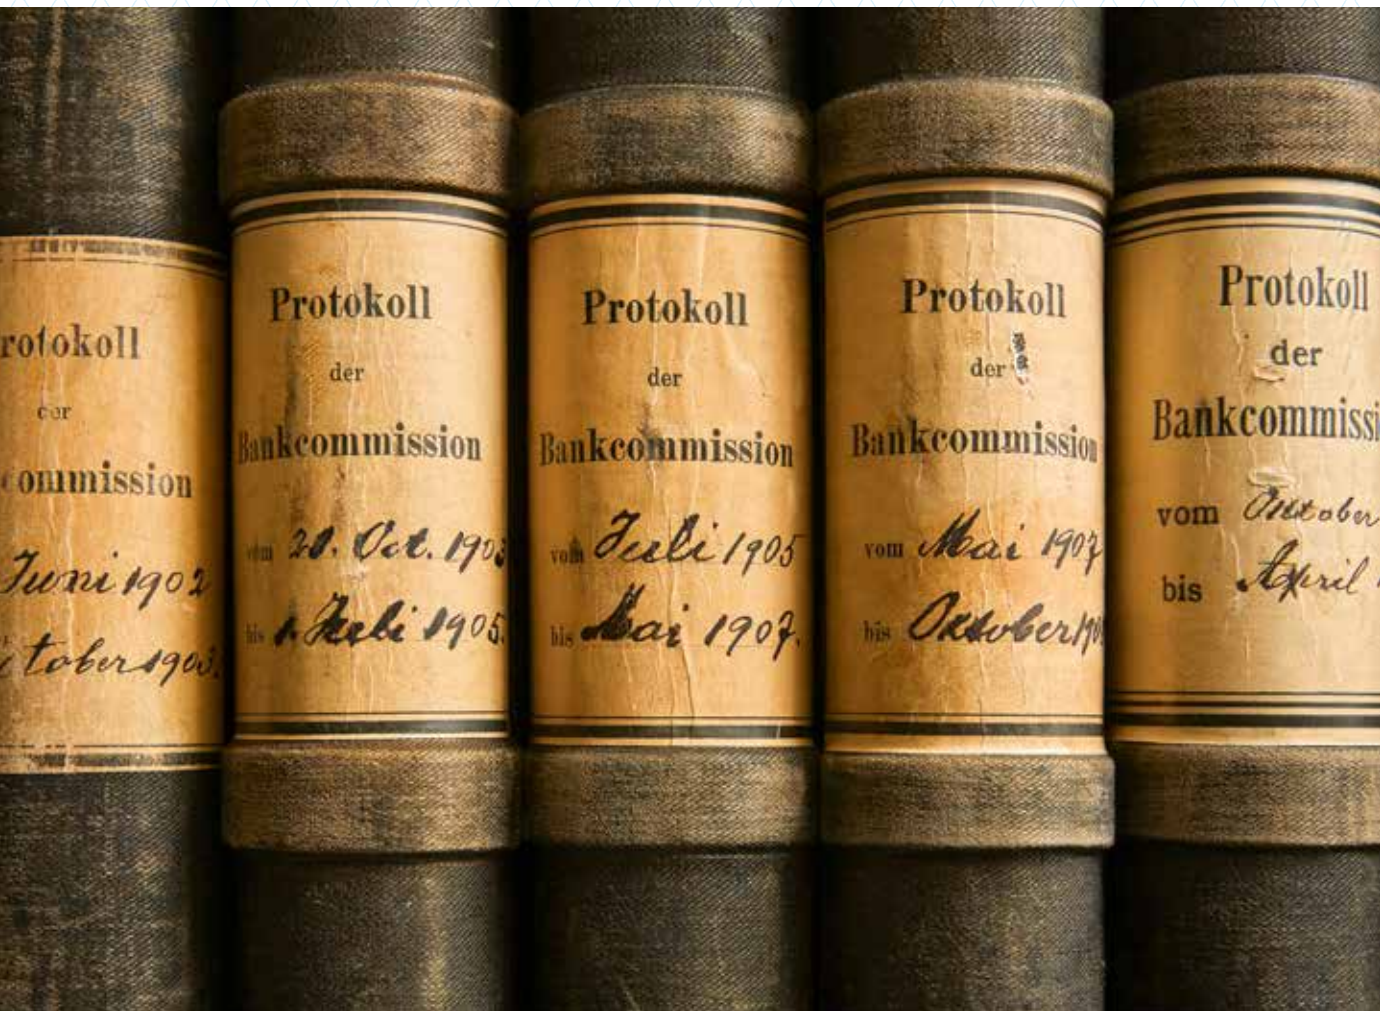 rotokoll
der
commission
Juni 1902
tober 1903.
Protokoll
der
Bankcommission
vom 20. Oct. 1903
bis 1. Juli 1905.
Protokoll
der
Bankcommission
vom Juli 1905
bis Mai 1907.
Protokoll
der
Bankcommission
vom Mai 1907
bis Oktober 190
Protokoll
der
Bankcommissi
vom Oktober
bis April